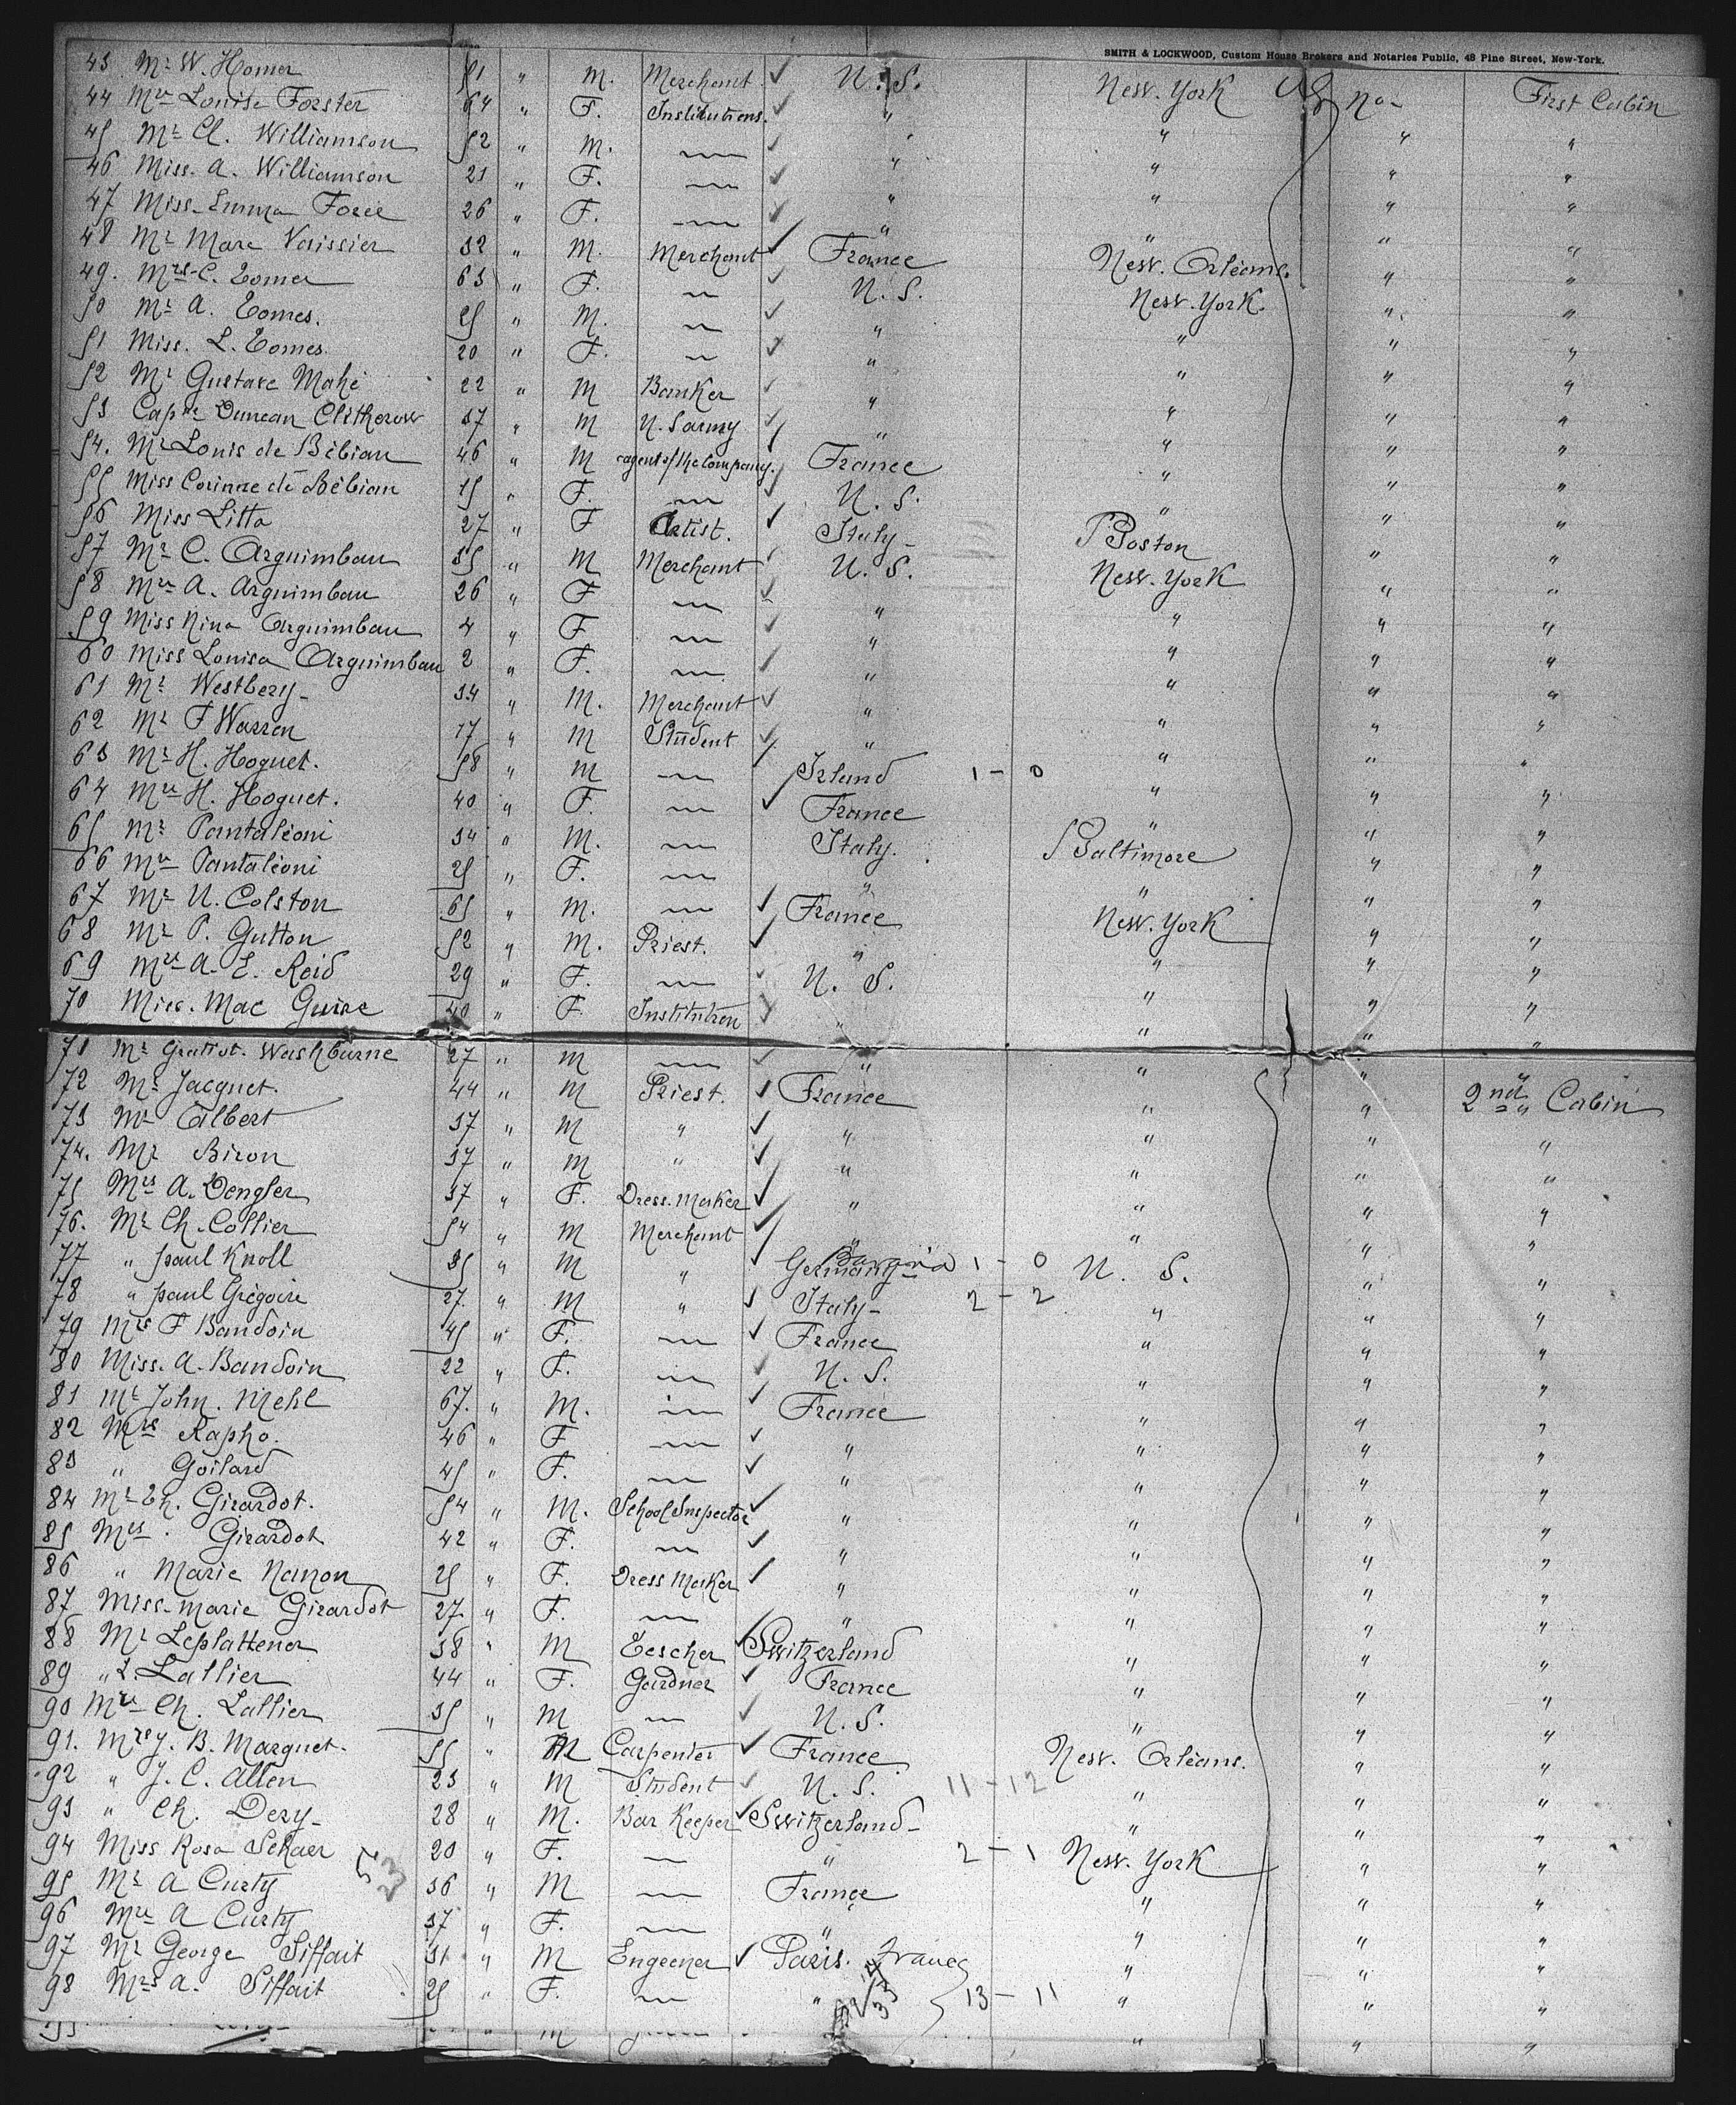 SMITH & LOCKWOOD, Custom House Brokers and Notaries Public, 48 Pine Street, New-York.
43 Mr W. Homer 51 " M. Merchant U. S. New. York No- First Cabin
44 Mrs Louise Forster 64 " F. Institutions. " " " "
45 Mr Cl. Williamson 52 " M. — " " " "
46 Miss. A. Williamson 21 " F. — " " " "
47 Miss. Emma Force 26 " F. — " " " "
48 Mr Marc Vaissier 32 " M. Merchant France New. Orleans. " "
49. Mrs C. Eomer 63 " F. — U. S. New. York. " "
50 Mr A. Eomes. 25 " M. — " " " "
51 Miss. L. Eomes. 20 " F. — " " " "
52 Mr Gustave Mahé 22 " M Banker " " " "
53 Capne Duncan Clitherow 37 " M U. S army " " " "
54. Mr Louis de Bébian 46 " M agent of the Company. France " " "
55 Miss Corinne de Bébian 15 " F. — U. S. " " "
56 Miss Litta 27 " F Artist. Italy - Boston " "
57 Mr C. Arguimbau 35 " M Merchant U. S. New. York " "
58 Mrs A. Arguimbau 26 " F — " " " "
59 Miss Nina Arguimbau 4 " F — " " " "
60 Miss Louisa Arguimbau 2 " F. — " " " "
61 Mr Westbery - 34 " M. Merchant " " " "
62 Mr F Warren 17 " M Student " " " "
63 Mr H. Hoguet. 58 " M — Irland 1 - 0 " " "
64 Mrs H. Hoguet. 40 " F. — France " " "
65 Mr Pantaléoni 34 " M. — Italy. Baltimore " "
66 Mrs Pantaléoni 25 " F. — " " " "
67 Mr U. Colston 65 " M. — France New. York " "
68 Mr P. Gutton 52 " M. Priest. " " " "
69 Mrs A. E. Reid 29 " F. — U. S. " " "
70 Miss. Mac Guire 40 " F. Institution " " " "
71 Mr Gratiot. Washburne 27 " M — " " " "
72 Mr Jacquet. 44 " M Priest. France " " 2nd Cabin
73 Mr Albert 37 " M " " " " "
74. Mr Biron 37 " M " " " " "
75 Mrs A. Dengler 37 " F. Dress. Maker " " " "
76. Mr Ch. Collier 54 " M Merchant " " " "
77 " paul Knoll 35 " M " Germany Bavaria 1 - 0 U. S. " "
78 " paul Grégoire 27. " M " Italy - 2 - 2 " " "
79 Mrs F Baudoin 45 " F. — France " " "
80 Miss. A. Baudoin 22 " F. — U. S. " " "
81 Mr John. Mehl 67. " M. — France " " "
82 Mrs Rapho. 46 " F — " " " "
83 " Goilard 45 " F. — " " " "
84 Mr Ch. Girardot. 54 " M. School Inspector " " " "
85 Mrs Girardot 42 " F. — " " " "
86 " Marie Nanon 25 " F. Dress Maker " " " "
87 Miss. Marie Girardot 27 " F. — " " " "
88 Mr Leplattener 38 " M Eescher Switzerland " " "
89 " L. Lallier 44 " F. Gardner France " " "
90 Mrs Ch. Lallier 35 " M — U. S. " " "
91. Mr J. B. Marquet. 55 " M Carpenter France New. Orleans. " "
92 " J. C. Allen 23 " M Student U. S. 11 - 12 " " "
93 " Ch. Dery - 28 " M. Bar Keeper Switzerland - " " "
94 Miss Rosa Schaer 20 " F. — " 2 - 1 New. York " "
95 Mr A Curty 36 " M — France " " "
96 Mrs A Curty 37 " F. — " " " "
97 Mr George Siffait 31 " M Engeener Paris. France " " "
98 Mrs A. Siffait 25 " F. — " 13 - 11 " " "